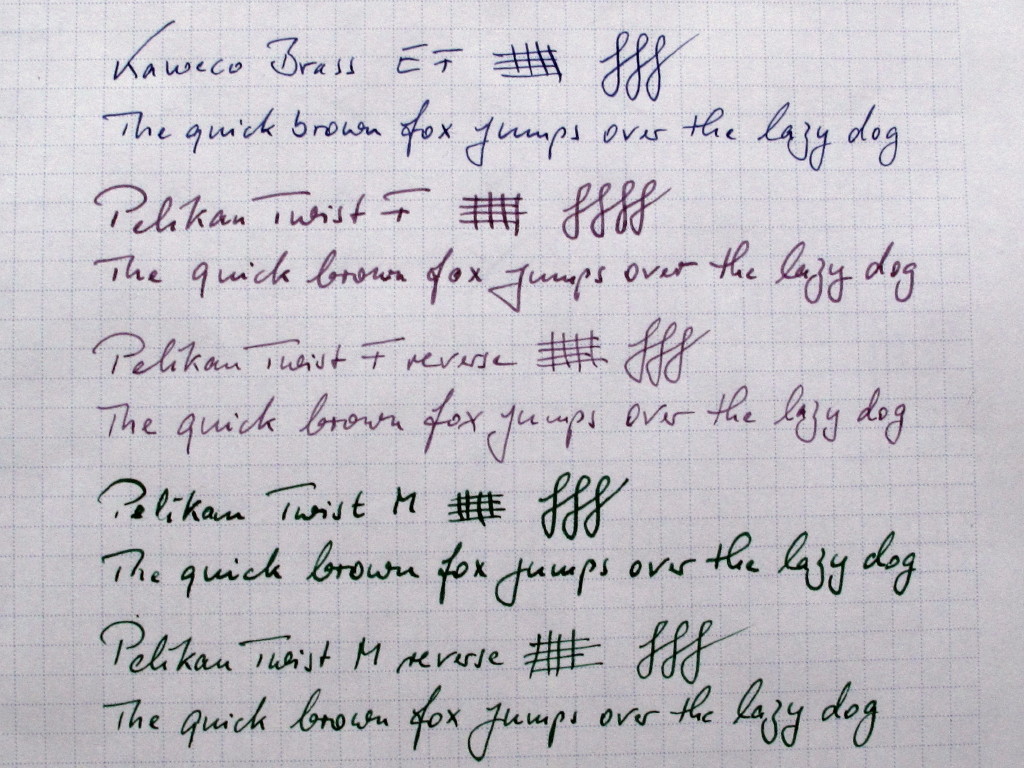 Kaweco Brass EF
The quick brown fox jumps over the lazy dog
Pelikan Twist F
The quick brown fox jumps over the lazy dog
Pelikan Twist F reverse
The quick brown fox jumps over the lazy dog
Pelikan Twist M
The quick brown fox jumps over the lazy dog
Pelikan Twist M reverse
The quick brown fox jumps over the lazy dog